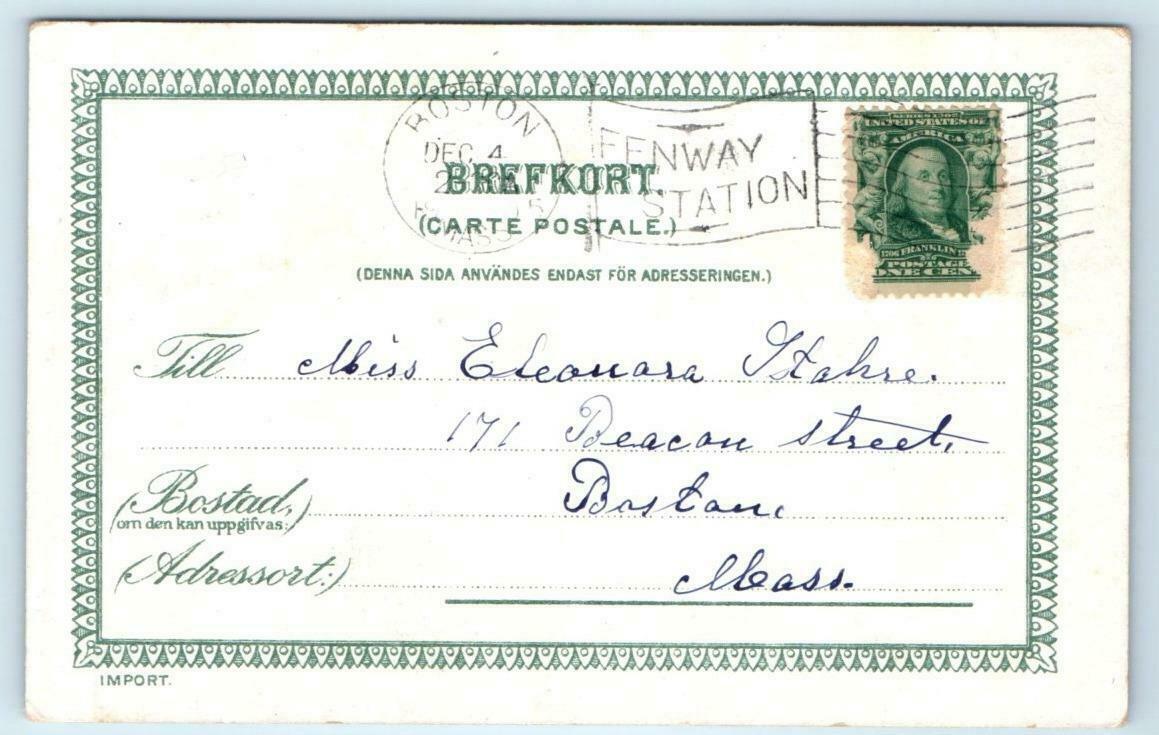 BOSTON
DEC. 4
MASS
FENWAY
STATION
SERIES 1902
UNITED STATES OF
AMERICA
1706 FRANKLIN
POSTAGE
ONE CEN
BREFKORT.
(CARTE POSTALE.)
(DENNA SIDA ANVÄNDES ENDAST FÖR ADRESSERINGEN.)
Till Miss Eleonara Stahre.
171 Beacon street,
(Bostad,
om den kan uppgifvas:)
Boston,
(Adressort:) Mass.
IMPORT.